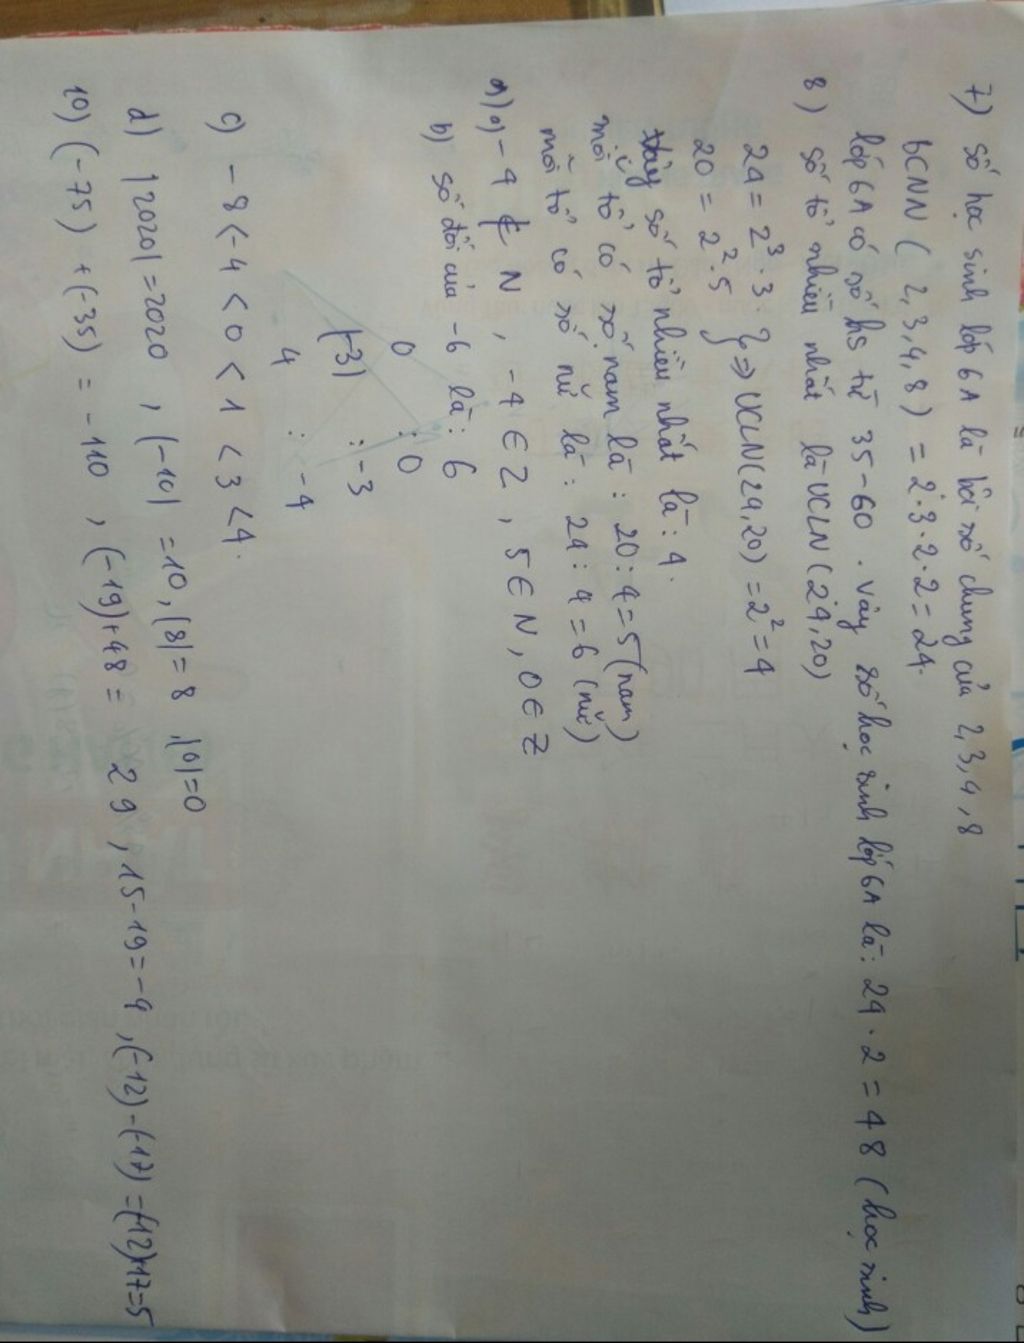 7) số học sinh lớp 6A là bội số chung của 2, 3, 4, 8
BCNN ( 2, 3, 4, 8 ) = 2·3·2·2 = 24.
lớp 6A có số hs từ 35-60 . vậy số học sinh lớp 6A là: 24 · 2 = 48 ( học sinh )
8) số tổ nhiều nhất là ƯCLN (24, 20)
24 = 2³ · 3 } => ƯCLN(24, 20) = 2² = 4
20 = 2² · 5
Vậy số tổ nhiều nhất là: 4.
mỗi tổ có số nam là : 20 : 4 = 5 (nam)
mỗi tổ có số nữ là : 24 : 4 = 6 (nữ)
9) a) - 4 ∉ N , -4 ∈ Z , 5 ∈ N, 0 ∈ Z
b) số đối của -6 là : 6
0 : 0
(-3) : -3
4 : -4
c) -8 < -4 < 0 < 1 < 3 < 4.
d) |2020| = 2020 , |-10| = 10, |8| = 8 , |0| = 0
10) (-75) + (-35) = -110 , (-19) + 48 = 29 , 15-19 = -4 , (-12) - (-17) = (-12)+17=5